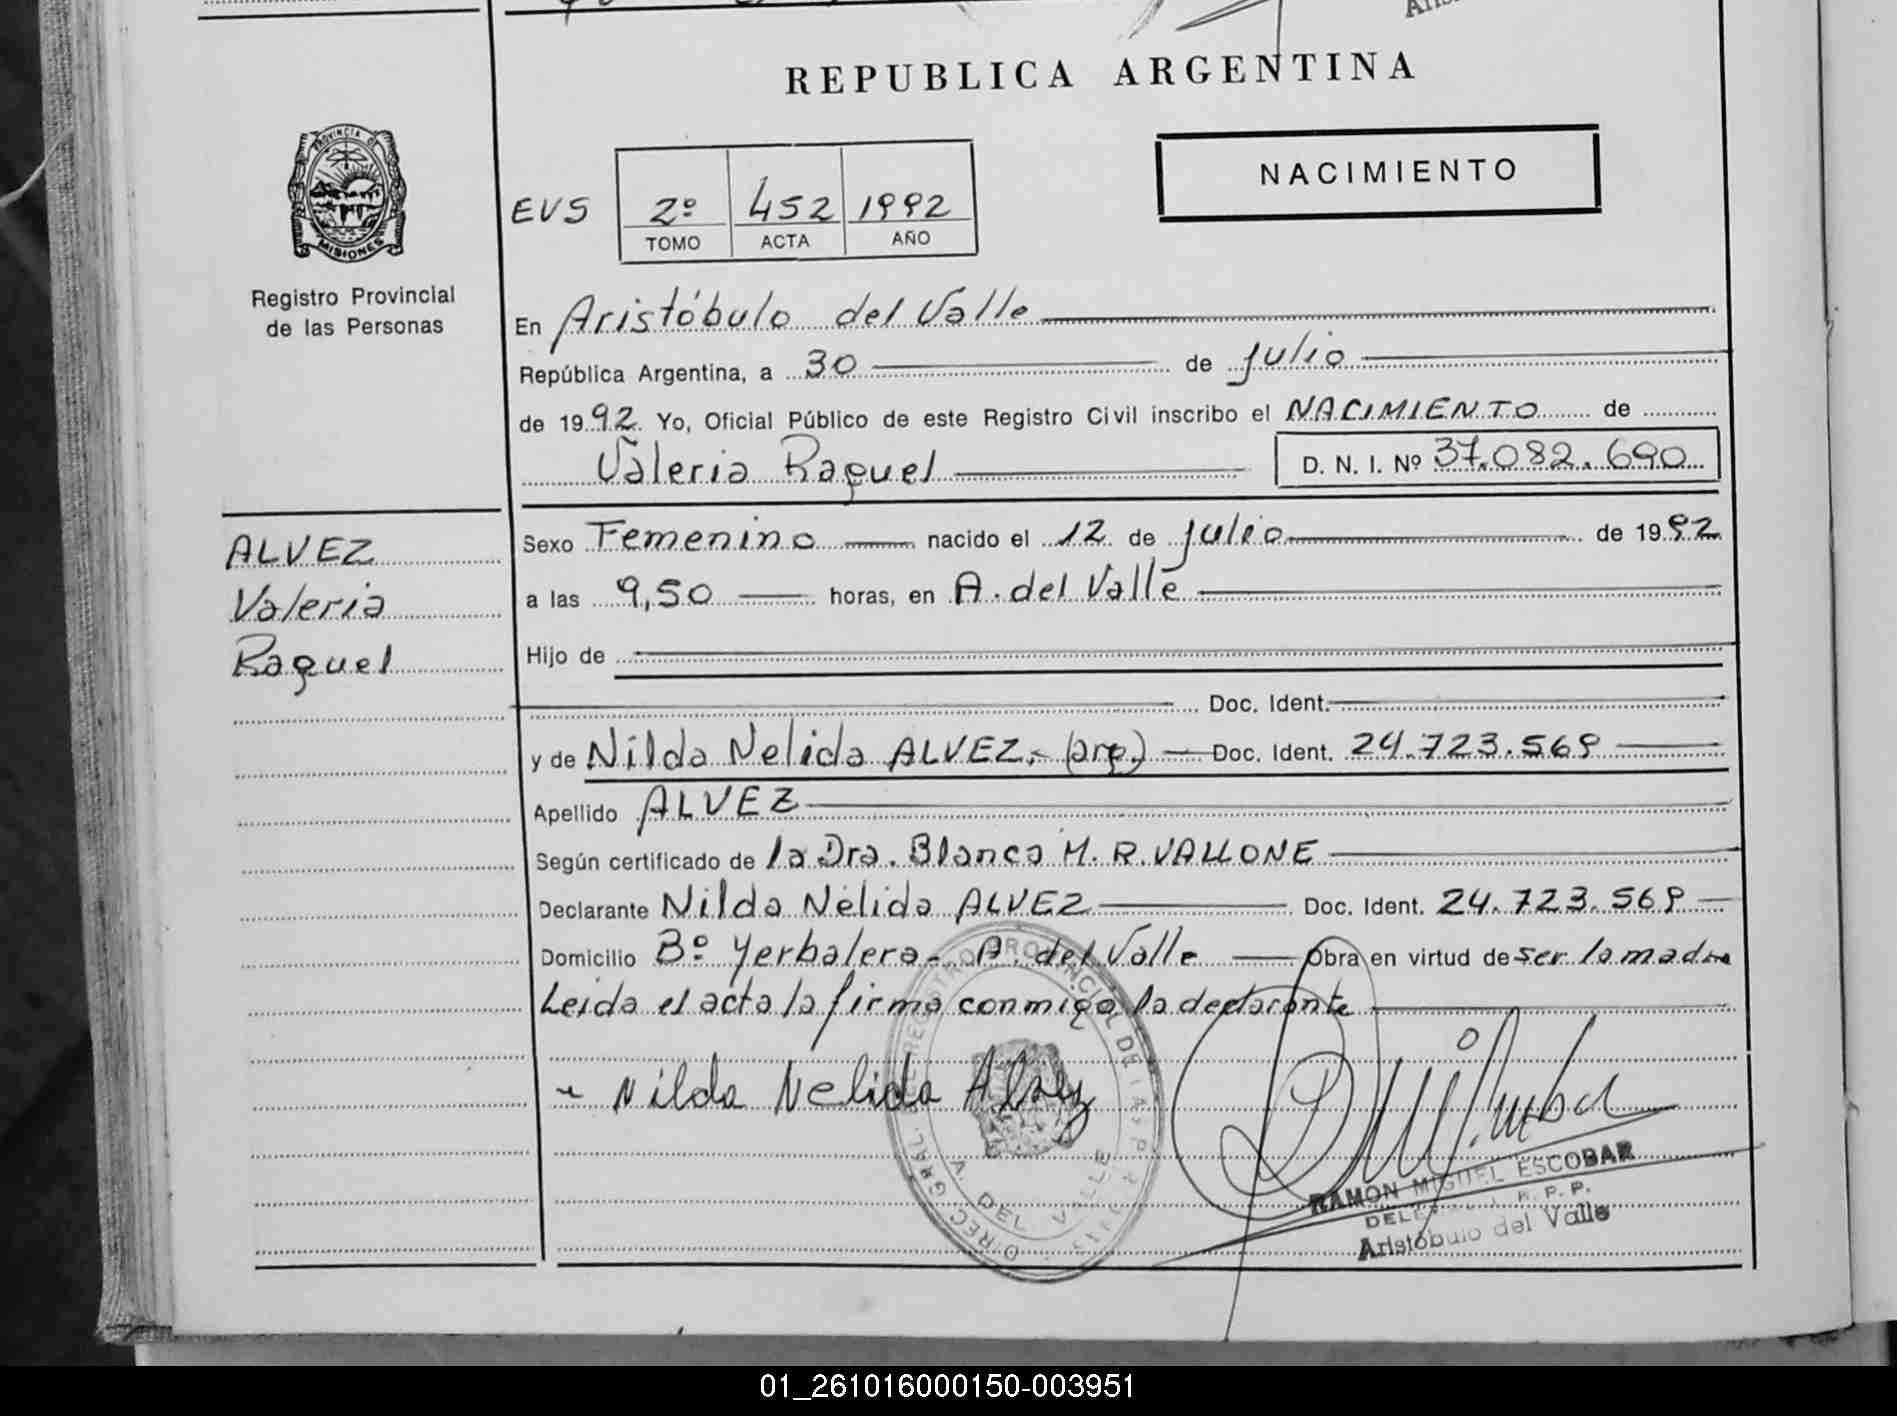 REPUBLICA ARGENTINA
PROVINCIA DE
MISIONES
Registro Provincial
de las Personas
NACIMIENTO
EVS 2º 452 1992
TOMO ACTA AÑO
En Aristóbulo del Valle
República Argentina, a 30 de julio
de 1992 Yo, Oficial Público de este Registro Civil inscribo el NACIMIENTO de
Valeria Raquel D. N. I. Nº 37.082.690
ALVEZ
Valeria
Raquel
Sexo Femenino nacido el 12 de julio de 1992
a las 9,50 horas, en A. del Valle
Hijo de
Doc. Ident.
y de Nilda Nelida ALVEZ.- (arg.) Doc. Ident. 24.723.569
Apellido ALVEZ
Según certificado de la Dra. Blanca M. R. VALLONE
Declarante Nilda Nélida ALVEZ Doc. Ident. 24.723.569
Domicilio Bº Yerbalera - A. del Valle Obra en virtud de ser la madre
Leida el acta la firma conmigo la declarante
Nilda Nelida Alvez
DIREC. GRAL. DEL REGISTRO PROVINCIAL DE LAS P
A. DEL VALLE
RAMON MIGUEL ESCOBAR
R. P. P.
Aristóbulo del Valle
01_261016000150-003951